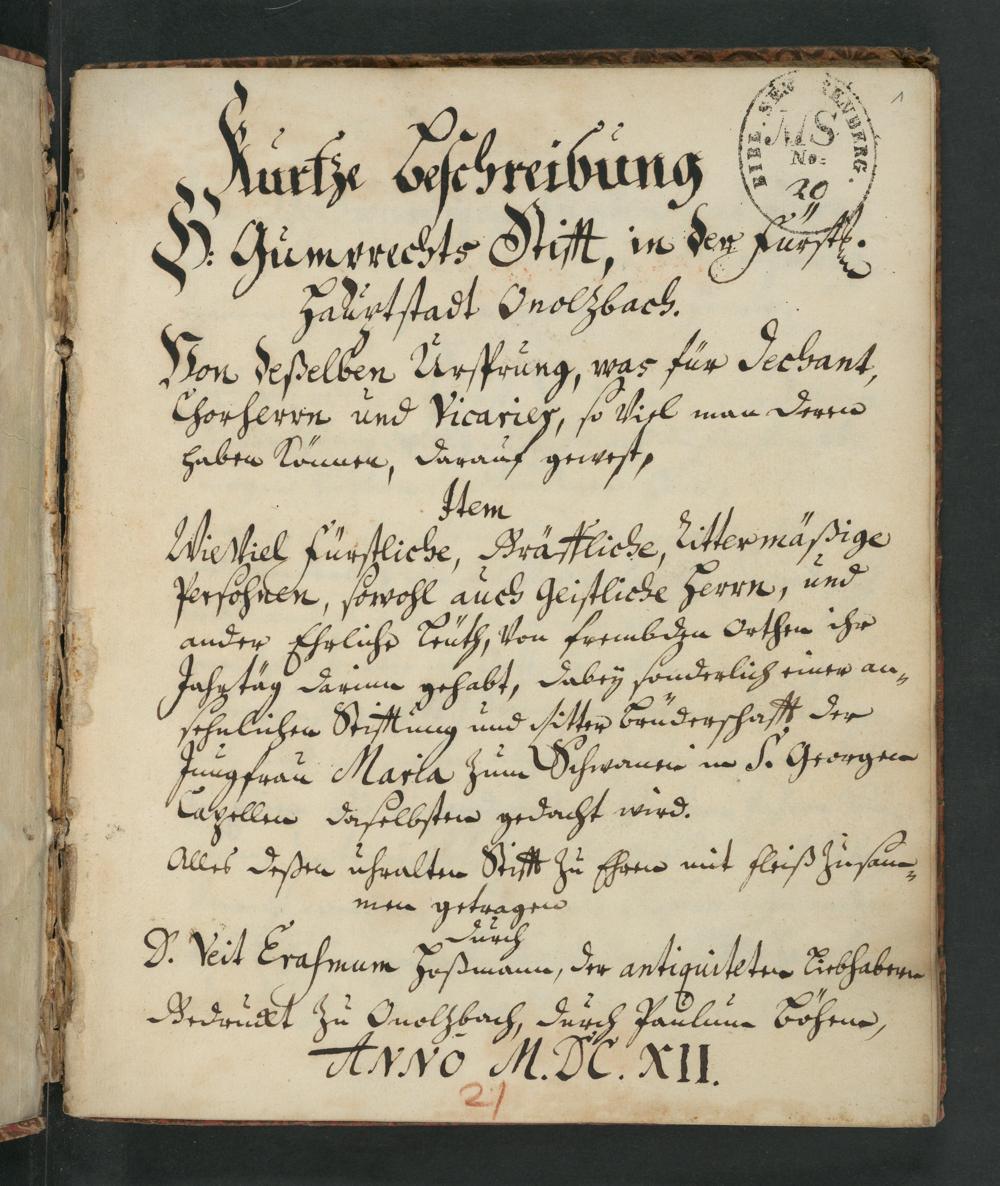 1
BIBL. SENCKENBERG.
MS
No:
20
Kurtze Beschreibung
S: Gumprechts Stifft, in der Fürstl.
Haubtstadt Onolzbach.
Von deßelben Ursprung, was für Dechant,
Chorherrn und Vicarier, so viel man deren
haben können, darauf gewest,
Item
Wie Viel Fürstliche, Gräffliche, Rittermäßige
Persohnen, sowohl auch Geistliche Herrn, und
ander Ehrliche Leüth, von frembden Orthen ihr
Jahrtäg darinn gehabt, dabey sonderlich einer an-
sehnlichen Stifftung und Ritter Brüderschafft der
Jungfrau Maria zum Schwanen in S. Georgen
Capellen daselbsten gedacht wird.
Alles deßen uhralten Stifft zu Ehren mit fleiß zusam-
men getragen
durch
D. Veit Erasmum Hoßmann, der antiquiteten Liebhabern
Gedruckt zu Onolzbach, durch Paulum Böhem,
ANNO M.DC.XII.
21